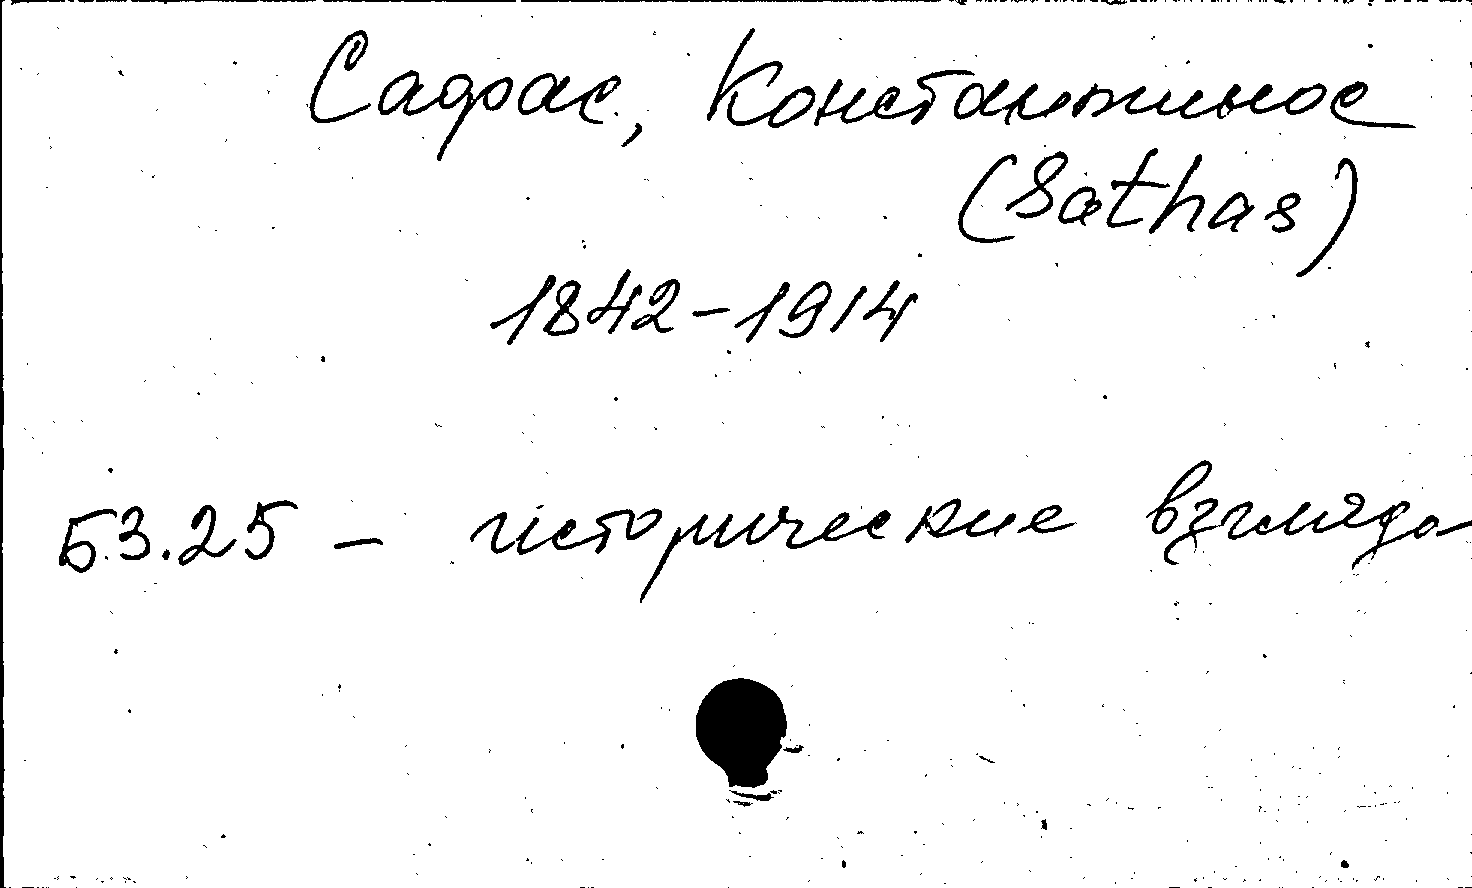 Сафас, Константинос
(Sathas)
1842-1914
Б3.25 - исторические взгляды